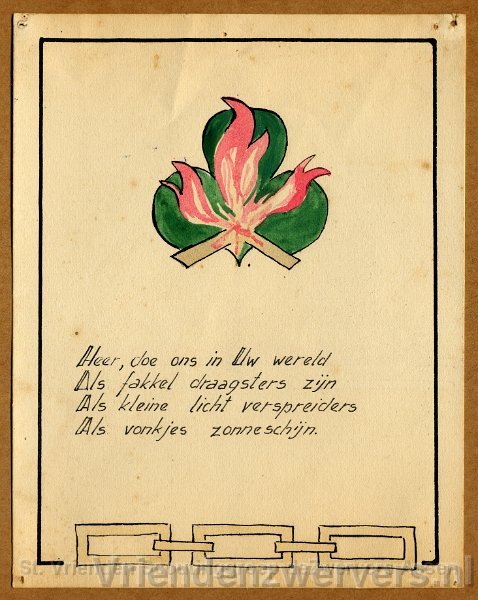 2
Heer, doe ons in Uw wereld
Als fakkel draagsters zijn
Als kleine licht verspreiders
Als vonkjes zonneschijn.
Vriendenzwervers.nl